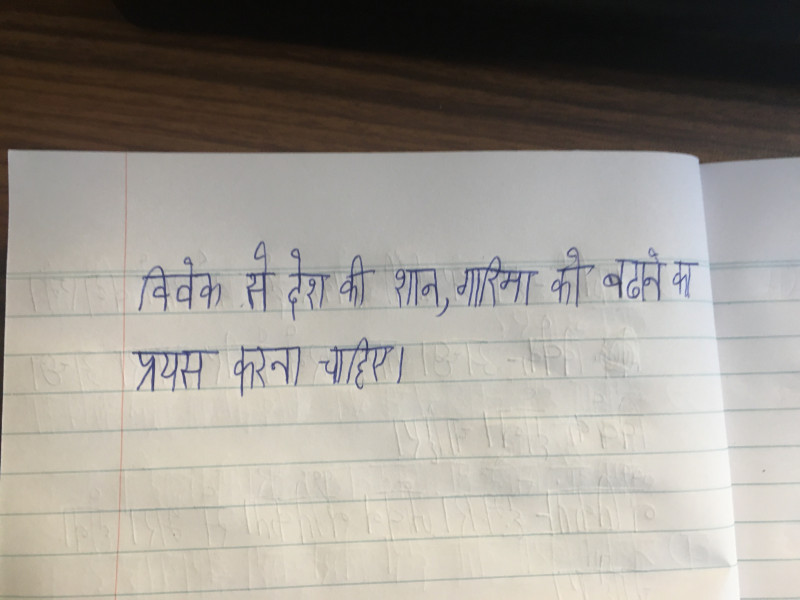 विवेक से देश की शान, गारिमा को बढाने का
प्रयस करना चाहिए।